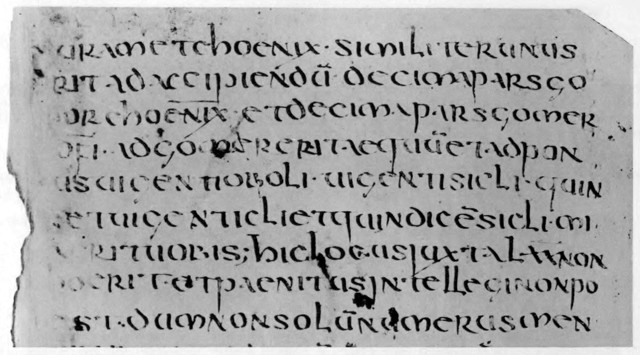 uram et choenix · similiter unius
rit ad accipiendū decima pars go
or choenix · et decima pars gomer
ad gomer erit aequū et ad pon
us uigenti oboli · uigenti sicli · quin
e et uigenti cli et quindicē sicli · m
erit uobis; hic locus juxta lxx non
erit · et paenitus intellegi non po
st · dum non solū numerus men